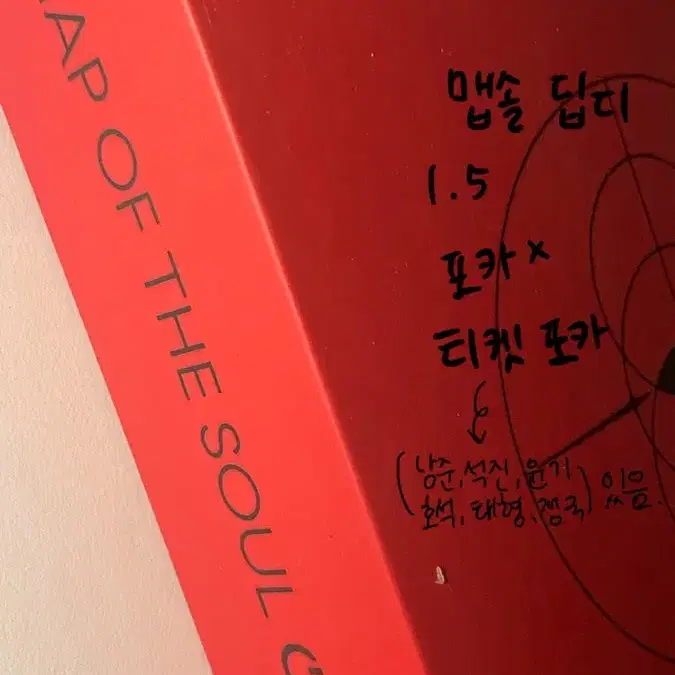 MAP OF THE SOUL
맵솔 딥디
1.5
포카 x
티켓 포카
(남준, 석진, 윤기
호석, 태형, 정국) 있음.